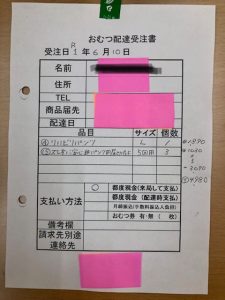 おむつ配達受注書
受注日 R1年6月10日
名前
住所
TEL
商品届先
配達日
品目 サイズ 個数
リハビリパンツ L 1
5回用 3
支払い方法
○ 都度現金(来局して支払)
都度現金(配達時支払)
月締振込(手数料振込人負担)
おむつ券 有・無 ( 枚)
備考欄
請求先別途
連絡先